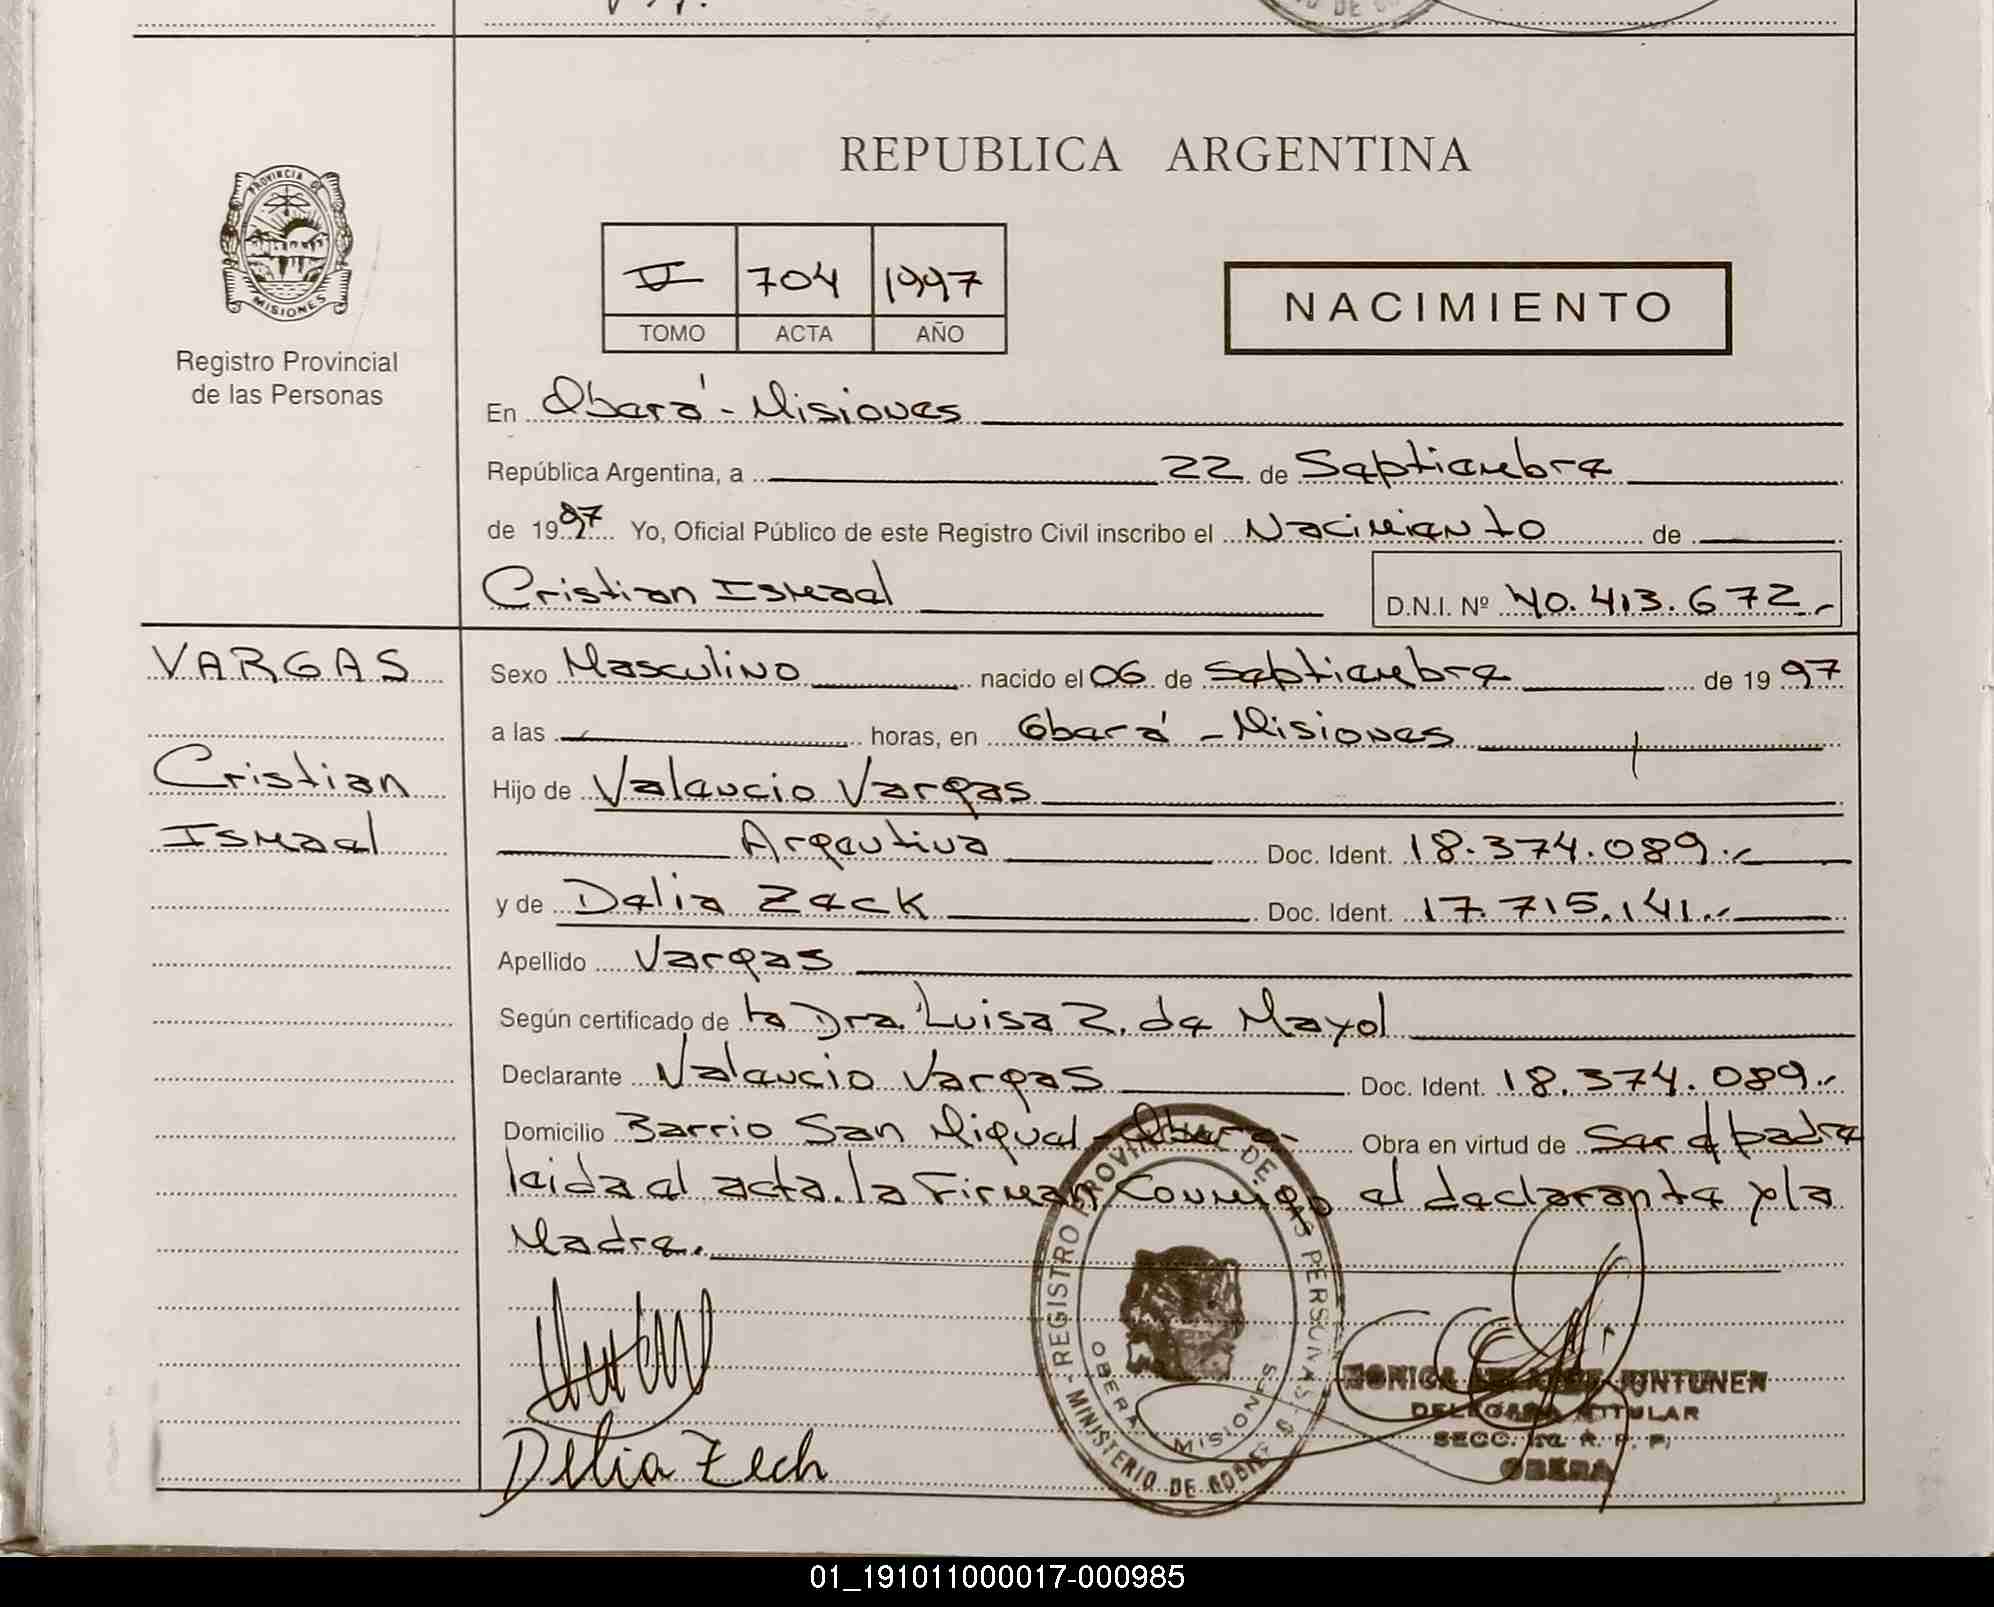 REPUBLICA ARGENTINA
PROVINCIA DE
MISIONES
Registro Provincial
de las Personas
V 704 1997
TOMO ACTA AÑO
NACIMIENTO
En Oberá - Misiones
República Argentina, a 22 de Septiembre
de 1997 Yo, Oficial Público de este Registro Civil inscribo el Nacimiento de
Cristian Ismael D.N.I. Nº 40.413.672.-
VARGAS
Cristian
Ismael
Sexo Masculino nacido el 06 de Septiembre de 1997
a las horas, en Oberá - Misiones
Hijo de Valencio Vargas
Argentina Doc. Ident. 18.374.089.-
y de Delia Zeck Doc. Ident. 17.715.141.-
Apellido Vargas
Según certificado de la Dra. Luisa Z. de Mayol
Declarante Valencio Vargas Doc. Ident. 18.374.089.-
Domicilio Barrio San Miguel - Obera- Obra en virtud de Ser el padre
leida el acta. la Firman Conmigo el declarante y la
Madre.
Delia Zech
REGISTRO PROVINCIAL DE LAS PERSONAS
MINISTERIO DE GOBIERNO
OBERA MISIONES
MONICA JUNTUNEN
DELEGADA TITULAR
SECC. R. P. P.
OBERA
01_191011000017-000985